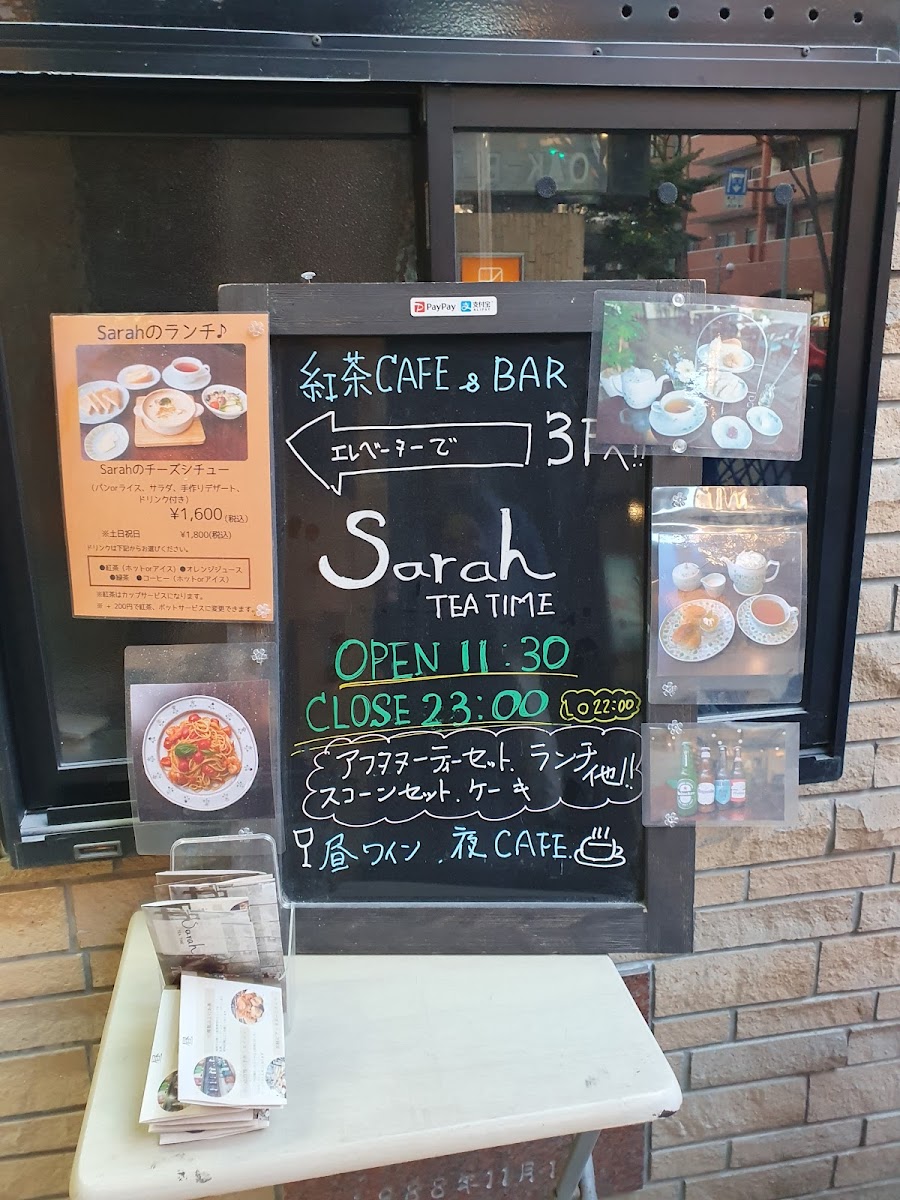 PayPay 支付宝 ALIPAY
紅茶CAFE & BAR
エレベーターで
3Fへ!!
Sarah
TEA TIME
OPEN 11:30
CLOSE 23:00
L.O 22:00
アフタヌーンティーセット、ランチ
スコーンセット、ケーキ 他!!
昼ワイン、夜CAFE
Sarahのランチ♪
Sarahのチーズシチュー
(パンorライス、サラダ、手作りデザート、
ドリンク付き)
¥1,600(税込)
※土日祝日 ¥1,800(税込)
ドリンクは下記からお選びください。
●紅茶(ホットorアイス)●オレンジジュース
●緑茶 ●コーヒー(ホットorアイス)
※紅茶はカップサービスになります。
※ + 200円で紅茶、ポットサービスに変更できます。
Sarah
1988年11月